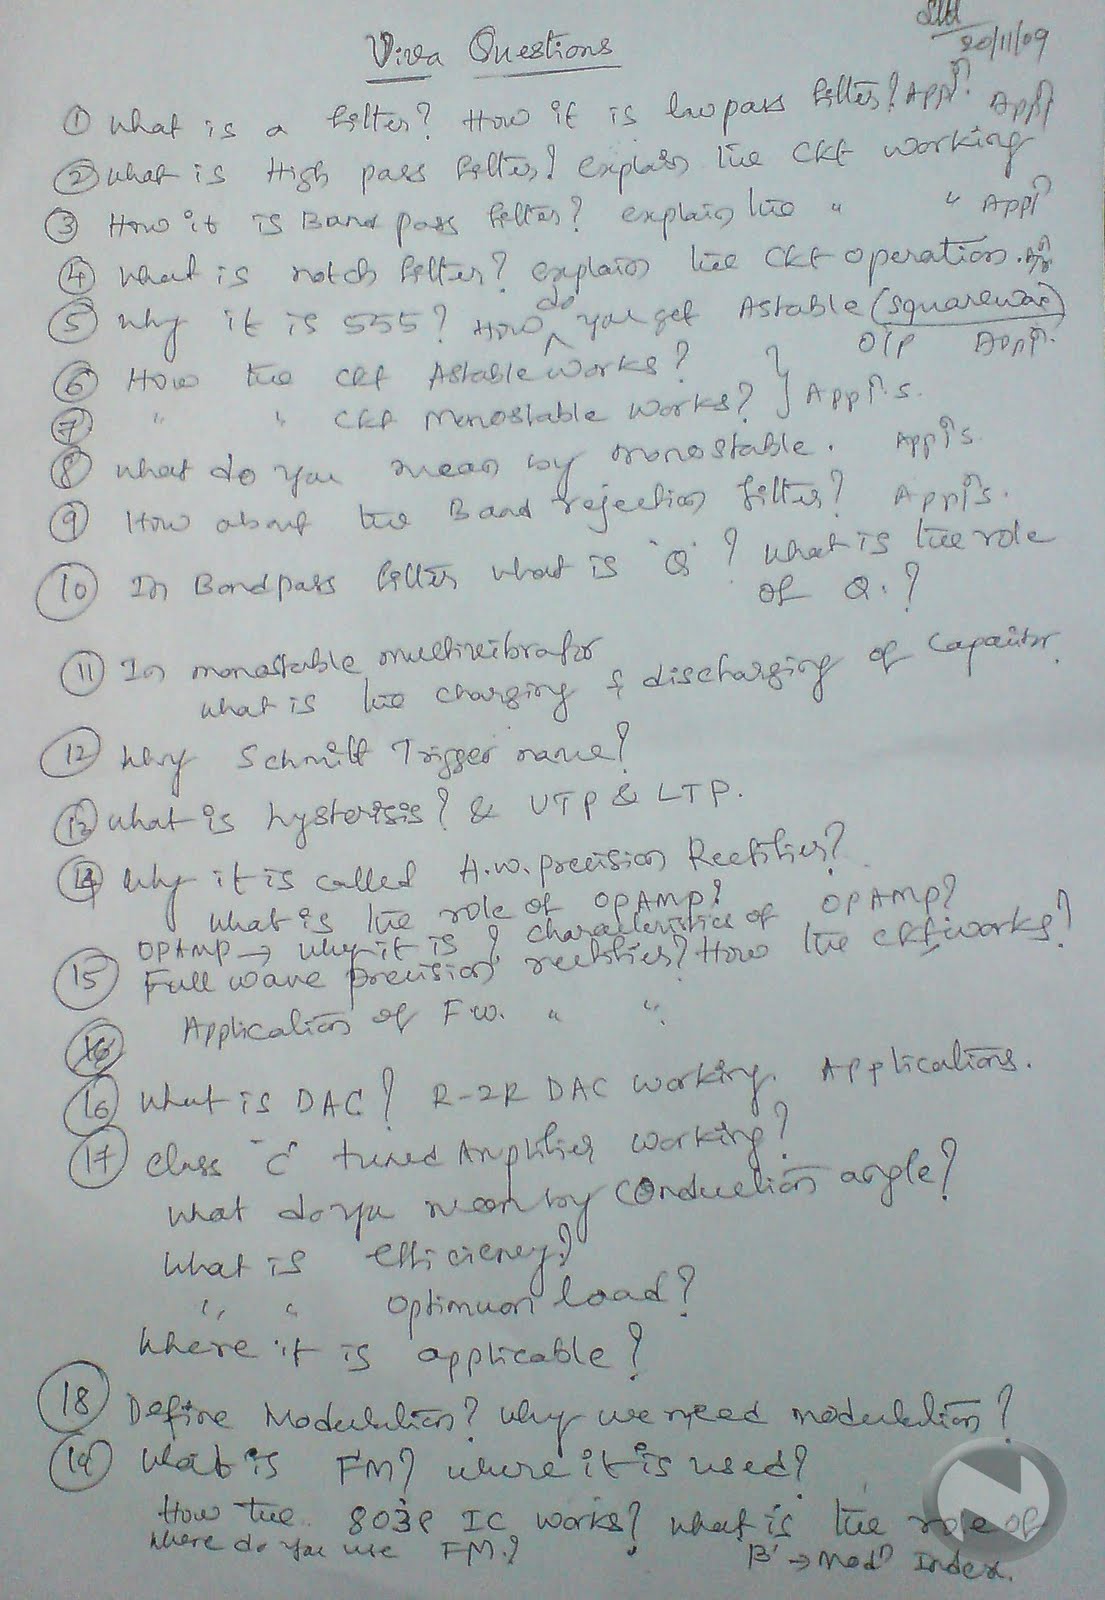 20/11/09
Viva Questions
① What is a filter? How it is low pass filter? Appl? Appl?
② What is High pass filter? explain the CKt working
③ How it is Band pass filter? explain the " " Appl?
④ What is notch filter? explain the CKt operation.
⑤ Why it is 555? How do you get Astable (squarewave)
O/P Appn.
⑥ How the CKt Astable works?
⑦ " " CKt Monostable works? } Appl?s.
⑧ What do you mean by monostable. Appl?s
⑨ How about the Band rejection filter? Appl?s.
⑩ In Bandpass filter what is 'Q'? What is the role
of Q.?
⑪ In monostable multivibrator
what is the charging & discharging of Capacitor.
⑫ Why Schmitt Trigger name?
⑬ What is hysterisis? & UTP & LTP.
⑭ Why it is called H.W. precision Rectifier?
What is the role of OPAMP?
OPAMP → why it is? characteristics of OPAMP?
⑮ Full wave precision rectifier? How the CKt works?
Application of F.W. " ".
⑯ What is DAC? R-2R DAC working. Applications.
⑰ Class "C" tuned Amplifier working?
What do you mean by Conduction angle?
What is efficiency?
" " optimum load?
Where it is applicable?
⑱ Define Modulation? Why we need modulation?
⑲ What is FM? where it is used?
How the 8038 IC works? What is the role of
Where do you use FM? 'B' → Modn Index.
N